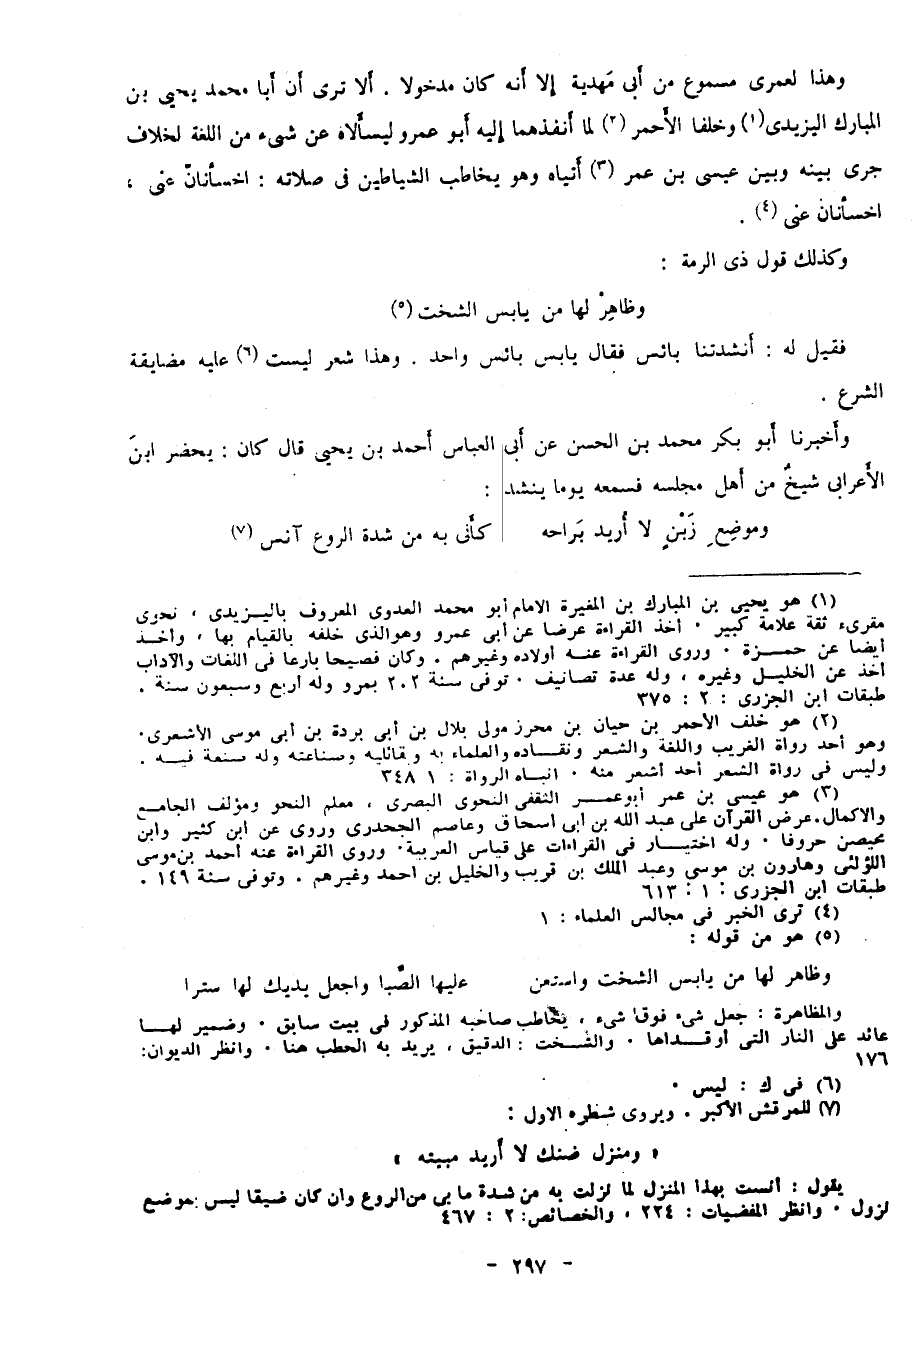 وهذا لعمرى مسموع من أبى مَهدية إلا أنه كان مدخولا . ألا ترى أن أبا محمد يحيى بن
المبارك اليزيدى(١) وخلفا الأحمر (٢) لما أنفذهما إليه أبو عمرو ليسألاه عن شىء من اللغة لخلاف
جرى بينه وبين عيسى بن عمر (٣) أتياه وهو يخاطب الشياطين فى صلاته : اخسأنانّ عنى ،
اخسأنان عنى (٤) .
وكذلك قول ذى الرمة :
وظاهِرْ لها من يابس الشخت (٥)
فقيل له : أنشدتنا بائس فقال يابس بائس واحد . وهذا شعر ليست (٦) عليه مضايقة
الشرع .
وأخبرنا أبو بكر محمد بن الحسن عن أبى العباس أحمد بن يحيى قال كان : يحضر ابنَ
الأعرابى شيخٌ من أهل مجلسه فسمعه يوما ينشد :
وموضِعِ زَبْنٍ لا أُريد بَراحه كأنى به من شدة الروع آنس (٧)
(١) هو يحيى بن المبارك بن المغيرة الامام أبو محمد العدوى المعروف باليزيدى ، نحوى
مقرىء ثقة علامة كبير . أخذ القراءة عرضا عن أبى عمرو وهو الذى خلفه بالقيام بها ، وأخذ
أيضا عن حمزة . وروى القراءة عنه أولاده وغيرهم . وكان فصيحا بارعا فى اللغات والآداب
أخذ عن الخليل وغيره ، وله عدة تصانيف . توفى سنة ٢٠٢ بمرو وله أربع وسبعون سنة .
طبقات ابن الجزرى : ٢ : ٣٧٥
(٢) هو خلف الأحمر بن حيان بن محرز مولى بلال بن أبى بردة بن أبى موسى الأشعرى .
وهو أحد رواة الغريب واللغة والشعر ونقاده والعلماء به وبقائليه وصناعته وله صنعة فيه .
وليس فى رواة الشعر أحد أشعر منه . انباه الرواة : ١ ٣٤٨
(٣) هو عيسى بن عمر أبو عمر الثقفى النحوى البصرى ، معلم النحو ومؤلف الجامع
والاكمال . عرض القرآن على عبد الله بن أبى اسحاق وعاصم الجحدرى وروى عن ابن كثير وابن
محيصن حروفا . وله اختيار فى القراءات على قياس العربية . وروى القراءة عنه أحمد بن موسى
اللؤلئى وهارون بن موسى وعبد الملك بن قريب والخليل بن احمد وغيرهم . وتوفى سنة ١٤٩ .
طبقات ابن الجزرى : ١ : ٦١٣
(٤) ترى الخبر فى مجالس العلماء : ١
(٥) هو من قوله :
وظاهر لها من يابس الشخت واستعن عليها الصَّبا واجعل يديك لها سترا
والمظاهرة : جعل شىء فوق شىء ، يخاطب صاحبه المذكور فى بيت سابق . وضمير لها
عائد على النار التى أوقداها . والشخت : الدقيق ، يريد به الحطب هنا . وانظر الديوان:
١٧٦
(٦) فى ك : ليس .
(٧) للمرقش الأكبر . ويروى شطره الاول :
« ومنزل ضنك لا أريد مبيته »
يقول : أنست بهذا المنزل لما نزلت به من شدة ما بى من الروع وان كان ضيقا ليس بموضع
نزول . وانظر المفضيات : ٢٢٤ ، والخصائص: ٢ : ٤٦٧
- ٢٩٧ -